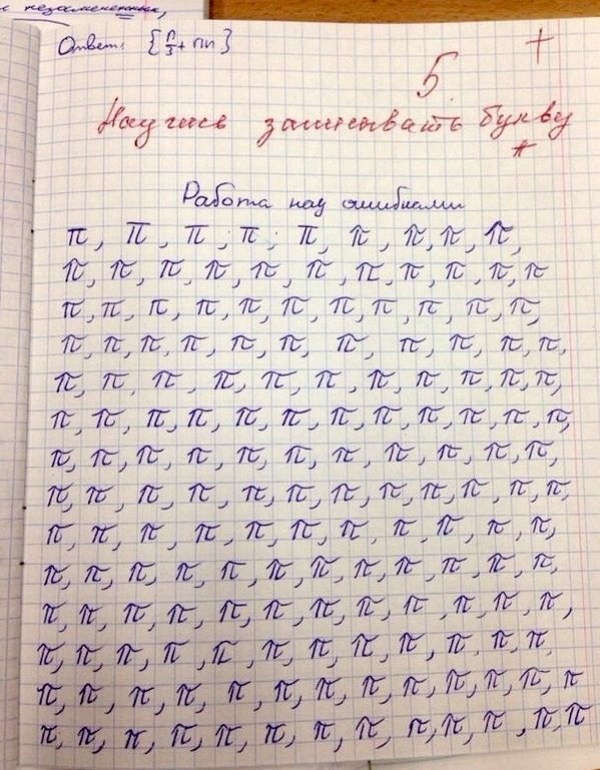 Ответ: {п/3 + пn}
5 +
Научись записывать букву
π
Работа над ошибками
π, π, π, π, π, π, π, π, π,
π, π, π, π, π, π, π, π, π, π, π
π, π, π, π, π, π, π, π, π, π, π,
π, π, π, π, π, π, π, π, π, π, π,
π, π, π, π, π, π, π, π, π, π, π,
π, π, π, π, π, π, π, π, π, π, π, π,
π, π, π, π, π, π, π, π, π, π, π,
π, π, π, π, π, π, π, π, π, π, π, π,
π, π, π, π, π, π, π, π, π, π, π,
π, π, π, π, π, π, π, π, π, π, π, π,
π, π, π, π, π, π, π, π, π, π, π, π,
π, π, π, π, π, π, π, π, π, π, π, π,
π, π, π, π, π, π, π, π, π, π, π, π, π
π, π, π, π, π, π, π, π, π, π, π, π, π